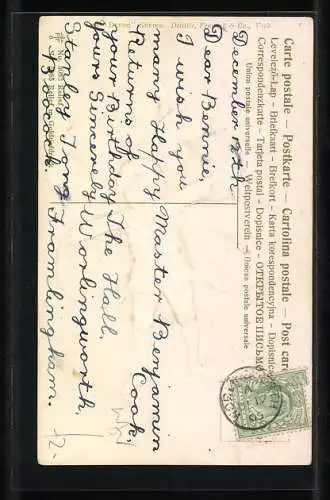 Carte postale – Postkarte – Cartolina postale – Post card
Levelező-Lap – Briefkaart – Brefkort – Karta korespondencyjna – Dopisnice
Correspondenzkarte – Tarjeta postal – Dopisnice – ОТКРЫТОЕ ПИСЬМО
Union postale universelle – Weltpostverein – Unione postale universale
December 12th
Dear Bennie,
I wish you
many Happy
Returns of
your Birthday
Yours Sincerely
Stanley Tong
Master Benjamin
Cook,
The Hall,
Worlingworth,
Framlingham.